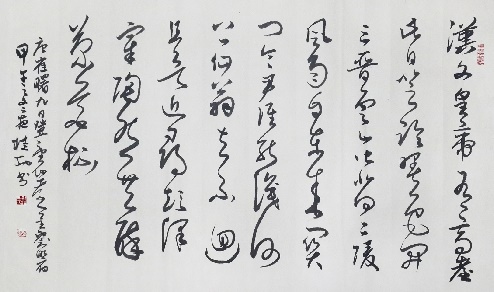 漢文皇帝有高臺
此日登臨曙色開
三晉雲山皆北向二陵
風雨自東來關
門令尹誰能識河
上仙翁去不迴
且欲近尋彭澤
宰陶然共醉
菊花杯
唐崔曙九日登望仙臺呈劉明府
甲午 書